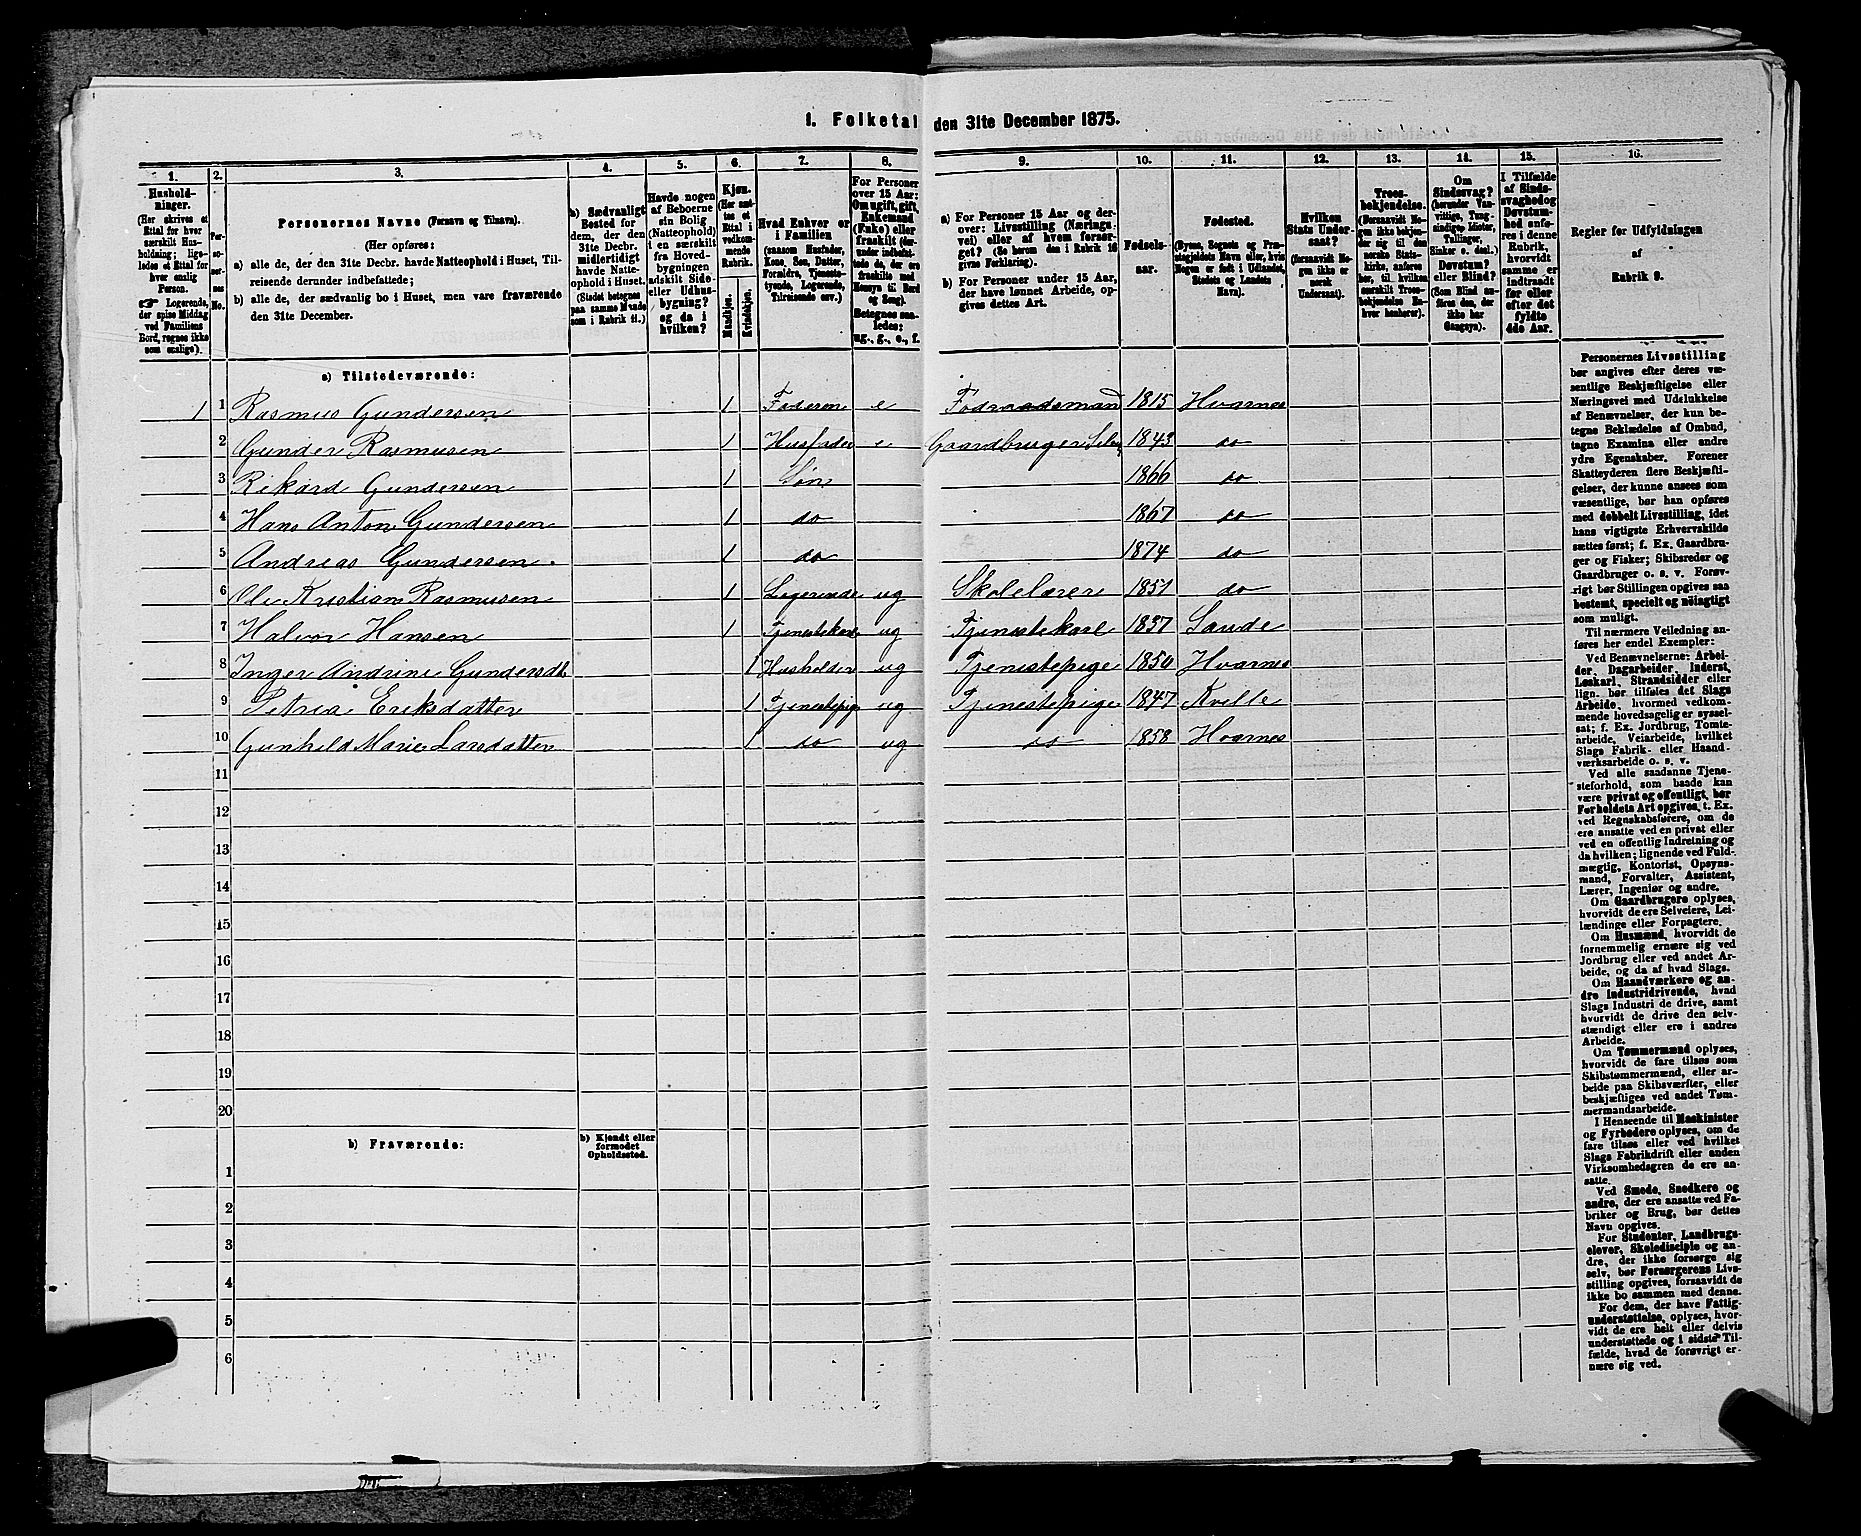 1. Folketal den 31te December 1875.
1. 2. 3. 4. 5. 6. 7. 8. 9. 10. 11. 12. 13. 14. 15. 16.
Hushold-
ninger.
(Her skrives et
Ettal for hver
særskilt Hus-
holdning; lige-
ledes et Ettal for
hver enslig
Person.
☞ Logerende,
der spise Middag
ved Familiens
Bord, regnes ikke
som enslige).
Per-
soner-
nes
No.
Personernes Navne (Fornavn og Tilnavn).
(Her opføres:
a) alle de, der den 31te Decbr. havde Natteophold i Huset, Til-
reisende derunder indbefattede;
b) alle de, der sædvanlig bo i Huset, men vare fraværende
den 31te December.
b) Sædvanligt
Bosted for
dem, der den
31te Decbr.
midlertidigt
havde Natte-
ophold i Huset.
(Stedet betegnes
paa samme Maade
som i Rubrik 11.)
Havde nogen
af Beboerne
sin Bolig
(Natteophold)
i en særskilt
fra Hoved-
bygningen
adskilt Side-
eller Udhus-
bygning?
og da i
hvilken?
Kjøn.
(Her sæt-
tes et
Ettal i
vedkom-
mende
Rubrik.
Mandkjøn.
Kvindekjøn.
Hvad Enhver er
i Familien
(saasom Husfader,
Kone, Søn, Datter,
Forældre, Tjeneste-
tyende, Logerende,
Tilreisende osv.)
For Personer
over 15 Aar:
Om ugift, gift,
Enkemand
(Enke) eller
fraskilt (der-
under indbefat-
tede de, der ere
fraskilte med
Hensyn til Bord
og Seng).
Betegnes saa-
ledes:
ug., g., e., f.
a) For Personer 15 Aar og der-
over: Livsstilling (Nærings-
vei) eller af hvem forsør-
get? (Se herom den i Rubrik 16
givne Forklaring).
b) For Personer under 15 Aar,
der have lønnet Arbeide, op-
gives dettes Art.
Fødsels-
aar.
Fødested.
(Byens, Sognets og Præ-
stegjeldets Navn eller, hvis
Nogen er født i Udlandet,
Stedets og Landets
Navn).
Hvilken
Stats Under-
saat?
(forsaavidt No-
gen ikke er
norsk
Undersaat).
Troes-
bekjendelse.
(Forsaavidt No-
gen ikke bekjen-
der sig til den
norske Stats-
kirke, anføres
her, til hvilken
særskilt Troes-
bekjendelse En-
hver henhører).
Om
Sindssvag?
(herunder Van-
vittige, Tung-
sindige, Idioter,
Tullinger,
Sinker o. desl.).
Døvstum?
eller Blind?
(Som Blind an-
føres den, der
ikke har
Gangsyn).
I Tilfælde
af Sinds-
svaghed og
Døvstum-
hed anfø-
res i denne
Rubrik,
hvorvidt
samme er
indtraadt
før eller
efter det
fyldte
4de Aar.
Regler for Udfyldningen
af
Rubrik 9.
a) Tilstedeværende:
1 1 Rasmus Gundersen 1 e 1815 Hvarnes
2 Gunder Rasmusen 1 Husfader e Gaardbruger Selv 1843 do
3 Rikard Gundersen 1 Søn 1866 do
4 Hans Anton Gundersen 1 do 1867 do
5 Andreas Gundersen 1 do 1874 do
6 Ole Kristian Rasmusen 1 Logerende ug Skolelærer 1851 do
7 Halvor Hansen 1 Tjenestekarl ug Tjenestekarl 1837 Sande
8 Inger Andrine Gundersdt. 1 Husholder ug Tjenestepige 1850 Hvarnes
9 Petrea Eriksdatter 1 Tjenestepige ug Tjenestepige 1847 Kville
10 Gunhild Marie Larsdatter 1 do ug do 1858 Hvarnes
11
12
13
14
15
16
17
18
19
20
b) Fraværende:
b) Kjendt eller
formodet
Opholdssted.
1
2
3
4
5
6
Personernes Livsstilling
bør angives efter deres væ-
sentlige Beskjæftigelse eller
Næringsvei med Udelukkelse
af Benævnelser, der kun be-
tegne Beklædelse af Ombud,
tagne Examina eller andre
ydre Egenskaber. Forener
Skatteyderen flere Beskjæfti-
gelser, der kunne ansees som
væsentlige, bør han opføres
med dobbelt Livsstilling, idet
hans vigtigste Erhvervskilde
sættes først; f. Ex. Gaardbru-
ger og Fisker; Skibsreder og
Gaardbruger o. s. v. Forøv-
rigt bør Stillingen opgives saa
bestemt, specielt og nøiagtigt
som muligt.
Til nærmere Veiledning an-
føres her endel Exempler:
Ved Benævnelserne: Arbei-
der, Dagarbeider, Inderst,
Løskarl, Strandsidder eller
lign. bør tilføies det Slags
Arbeide, hvormed vedkom-
mende hovedsagelig er syssel-
sat; f. Ex. Jordbrug, Tomte-
arbeide, Veiarbeide, hvilket
Slags Fabrik- eller Haand-
værksarbeide o. s. v.
Ved alle saadanne Tjene-
steforhold, som baade kan
være privat og offentligt, bør
Forholdets Art opgives, t. Ex.
ved Regnskabsførere, om de
ere ansatte ved en privat eller
ved en offentlig Indretning og
da hvilken; lignende ved Fuld-
mægtig, Kontorist, Opsyns-
mand, Forvalter, Assistent,
Lærer, Ingeniør og andre.
Om Gaardbrugere oplyses,
hvorvidt de ere Selveiere, Lei-
lændinge eller Forpagtere.
Om Husmænd, hvorvidt de
fornemmelig ernære sig ved
Jordbrug eller ved andet Ar-
beide, og da af hvad Slags.
Om Haandværkere og an-
dre Industridrivende, hvad
Slags Industri de drive, samt
hvorvidt de drive den selv-
stændigt eller ere i andres
Arbeide.
Om Tømmermænd oplyses,
hvorvidt de fare tilsøs som
Skibstømmermænd, eller ar-
beide paa Skibsværfter, eller
beskjæftiges ved andet Tøm-
mermandsarbeide.
I Henseende til Maskinister
og Fyrbødere oplyses, om de
fare tilsøs eller ved hvilket
Slags Fabrikdrift eller anden
Virksomhedsgren de ere an-
satte.
Ved Smede, Snedkere og
andre, der ere ansatte ved Fa-
briker og Brug, bør dettes
Navn opgives.
For Studenter, Landbrugs-
elever, Skoledisciple og an-
dre, der ikke forsørge sig
selv, bør Forsørgerens Livs-
stilling opgives, forsaavidt de
ikke bo sammen med denne.
For dem, der have Fattig-
understøttelse, oplyses, hvor-
vidt de ere helt eller delvis
understøttede og i sidste Til-
fælde, hvad de forøvrigt er-
nære sig ved.